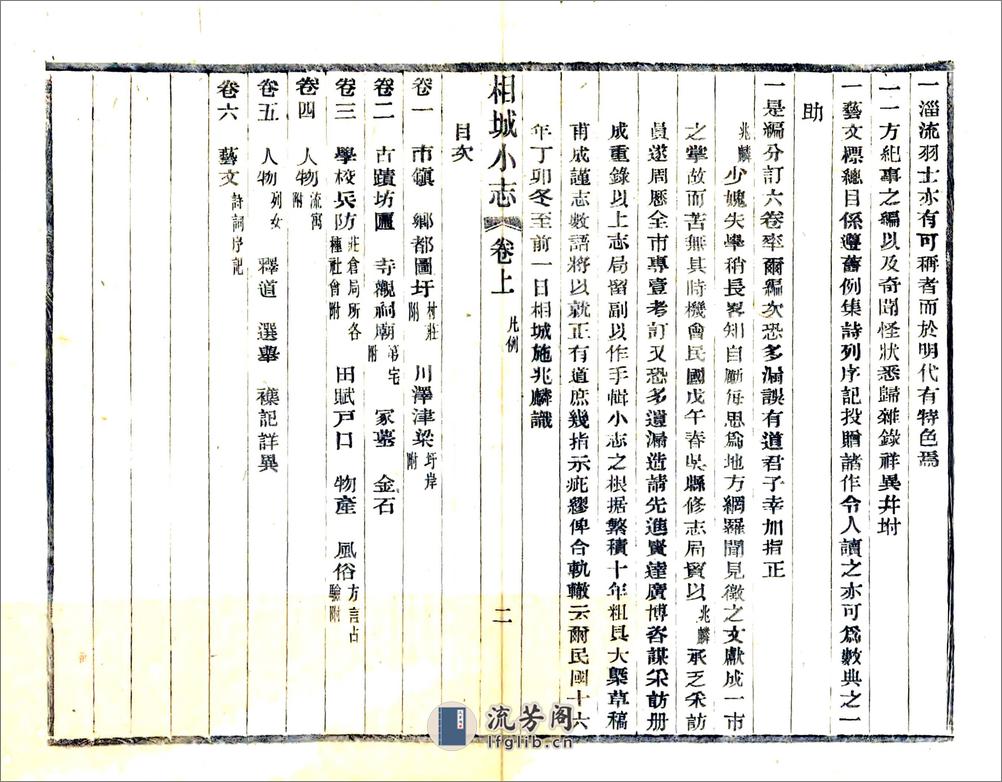 一淄流羽士亦有可稱者而於明代有特色焉
一一方紀事之編以及奇聞怪狀悉歸雜錄祥異幷坿
一藝文標總目係遵舊例集詩列序記投贈諸作令人讀之亦可爲數典之一
助
一是編分訂六卷率爾編次恐多漏誤有道君子幸加指正
兆麟少媿失學稍長畧知自勵每思爲地方網羅聞見徵之文獻成一市
之掌故而苦無其時機會民國戊午春吳縣修志局質以兆麟承乏采訪
員遂周歷全市專壹考訂又恐多遺漏造請先進賢達廣博咨謀采訪册
成重錄以上志局留副以作手輯小志之根据繁積十年粗具大槩草稿
甫成謹志數語將以就正有道庶幾指示疵繆俾合軌轍云爾民國十六
年丁卯冬至前一日相城施兆麟識
相城小志 卷上 凡例 二
目次
卷一 市鎭 鄉都圖圩村莊附 川澤津梁圩岸附
卷二 古蹟坊匾 寺觀祠廟第宅附 冢墓 金石
卷三 學校兵防莊倉局所各種社會附 田賦戶口 物產 風俗方言占驗附
卷四 人物流寓
卷五 人物列女 釋道 選舉 襍記詳異
卷六 藝文詩詞序記
流芳阁
lfglib.cn